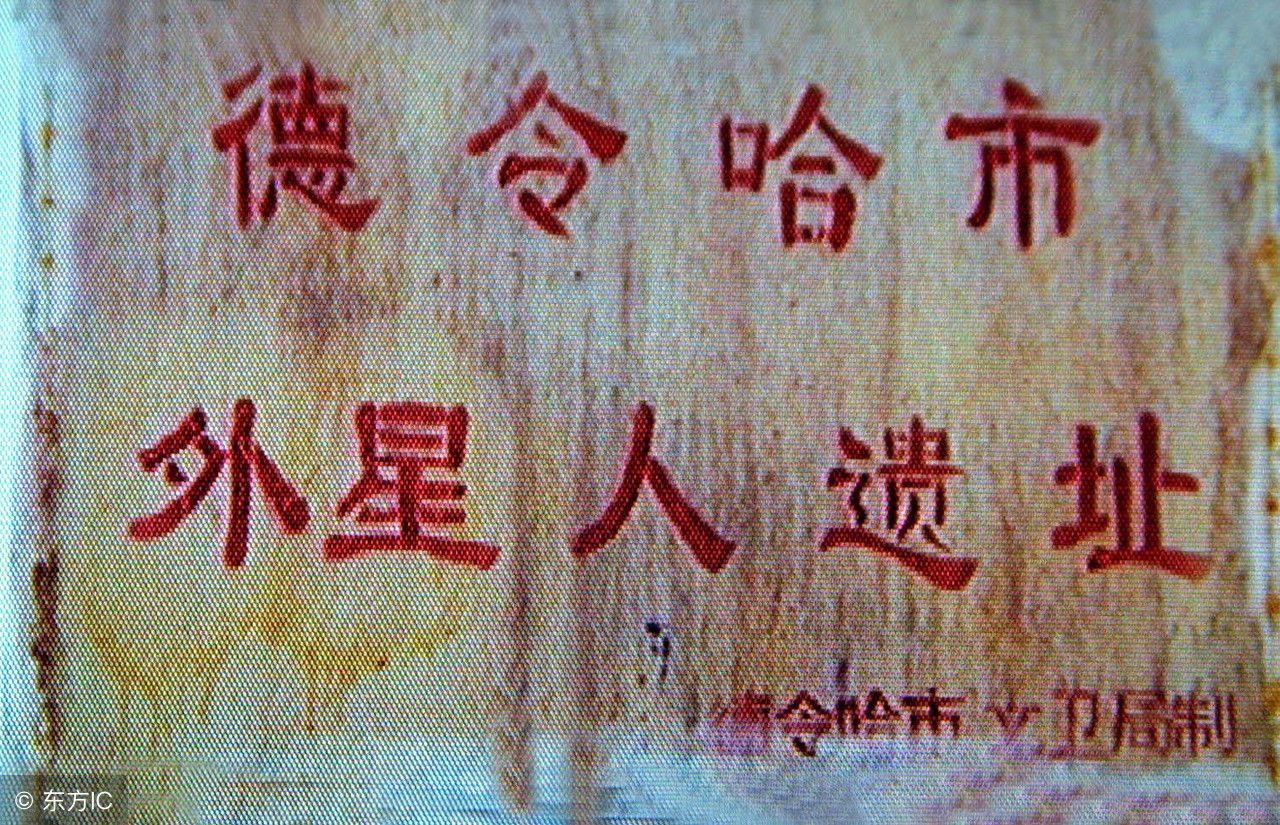 德令哈市
外星人遗址
德令哈市文卫局制
© 东方IC